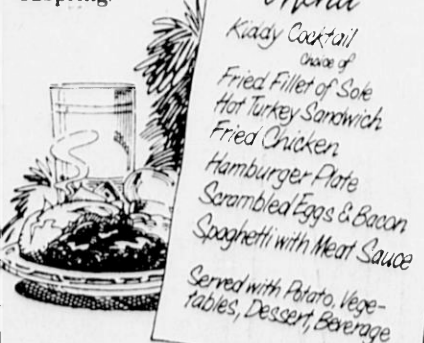 Menu
Kiddy Cocktail
Choice of
Fried Fillet of Sole
Hot Turkey Sandwich
Fried Chicken
Hamburger Plate
Scrambled Eggs & Bacon
Spaghetti with Meat Sauce
Served with Potato, Vege-
tables, Dessert, Beverage